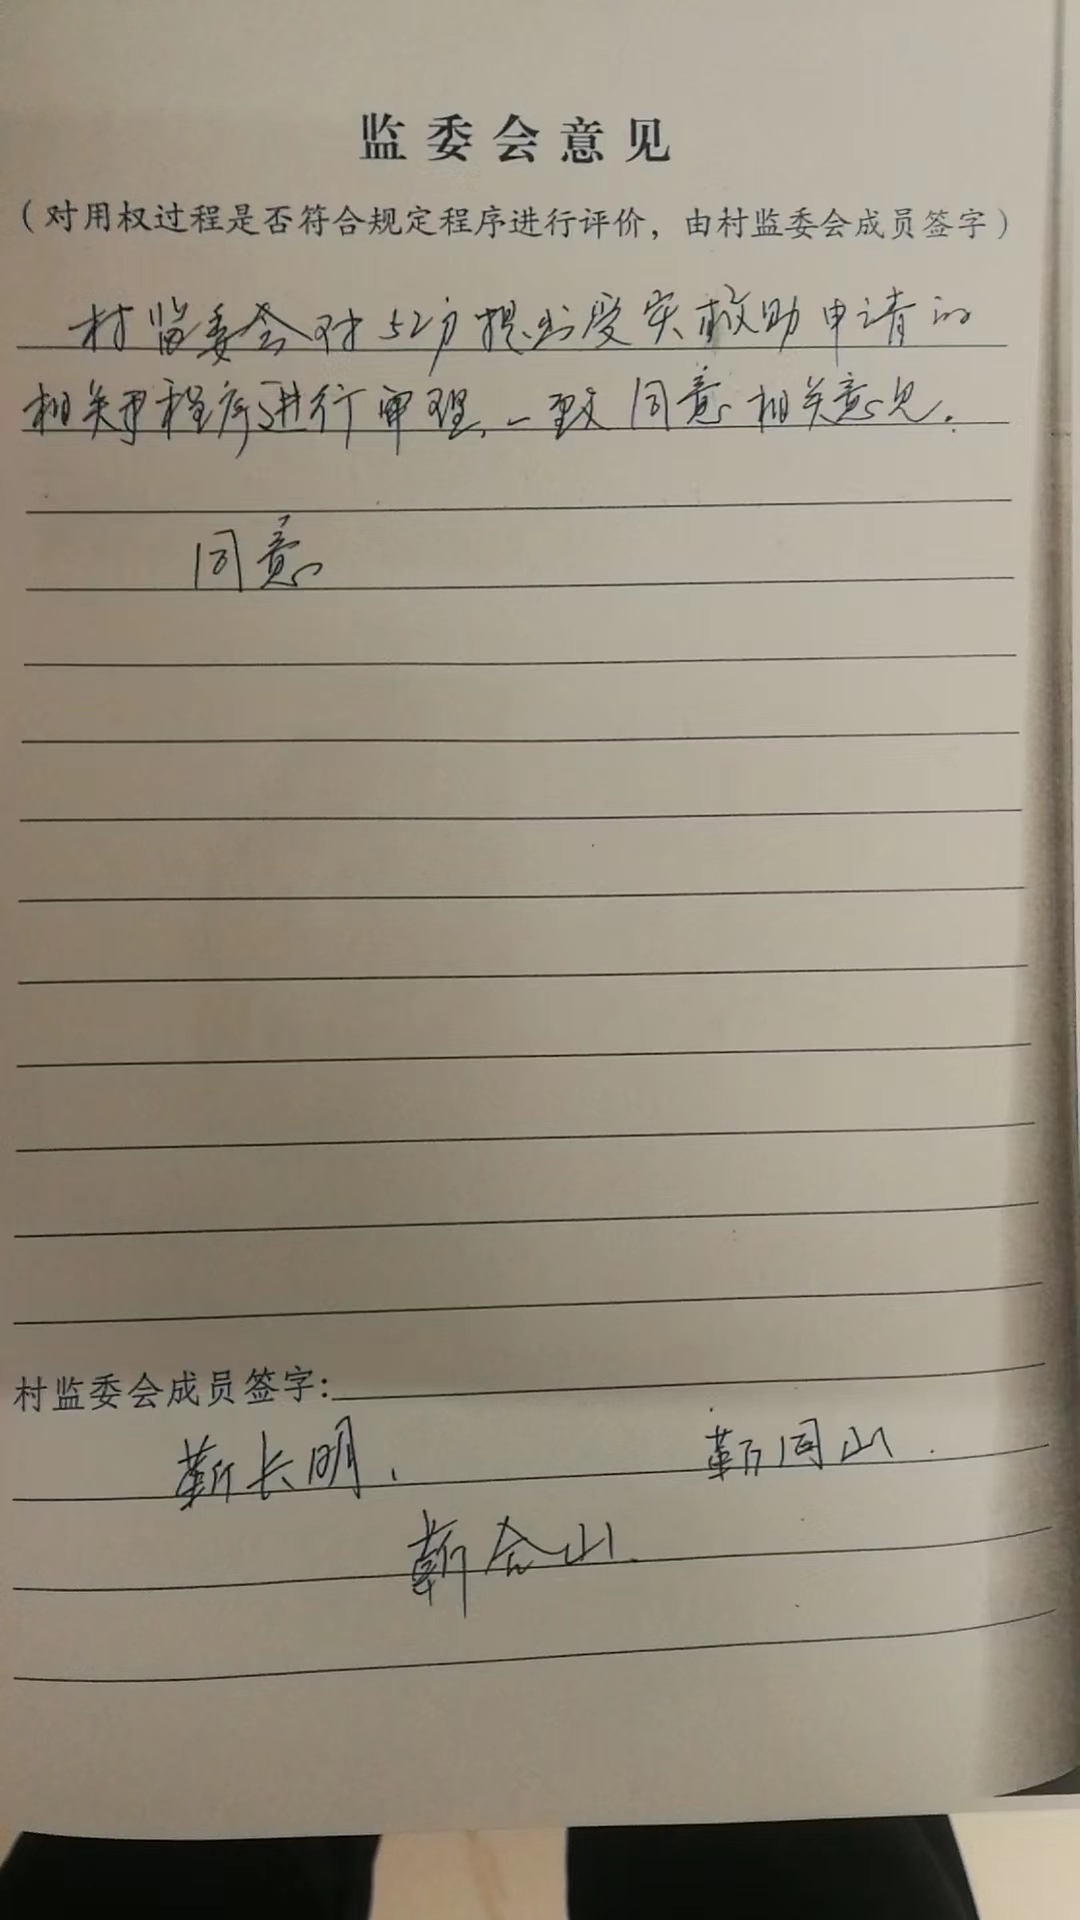 监委会意见
（对用权过程是否符合规定程序进行评价，由村监委会成员签字）
村监委会对52户提出受灾救助申请的
相关事程序进行审理，一致同意相关意见。
同意
村监委会成员签字：
靳长明、 靳同山.
靳合山.